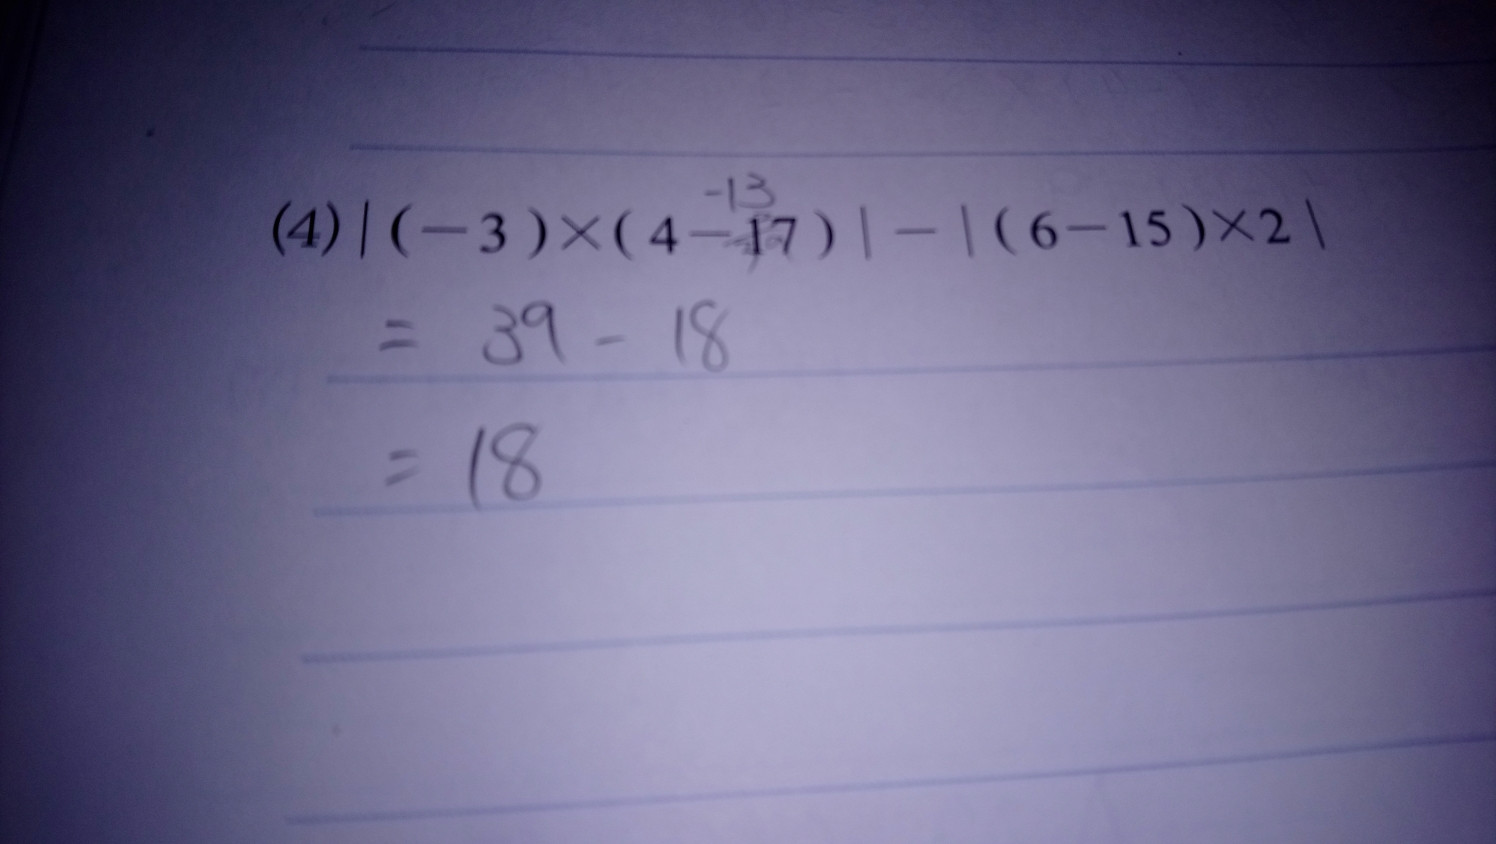 -13
(4)|(-3)×(4-17)|-|(6-15)×2|
= 39 - 18
= 18